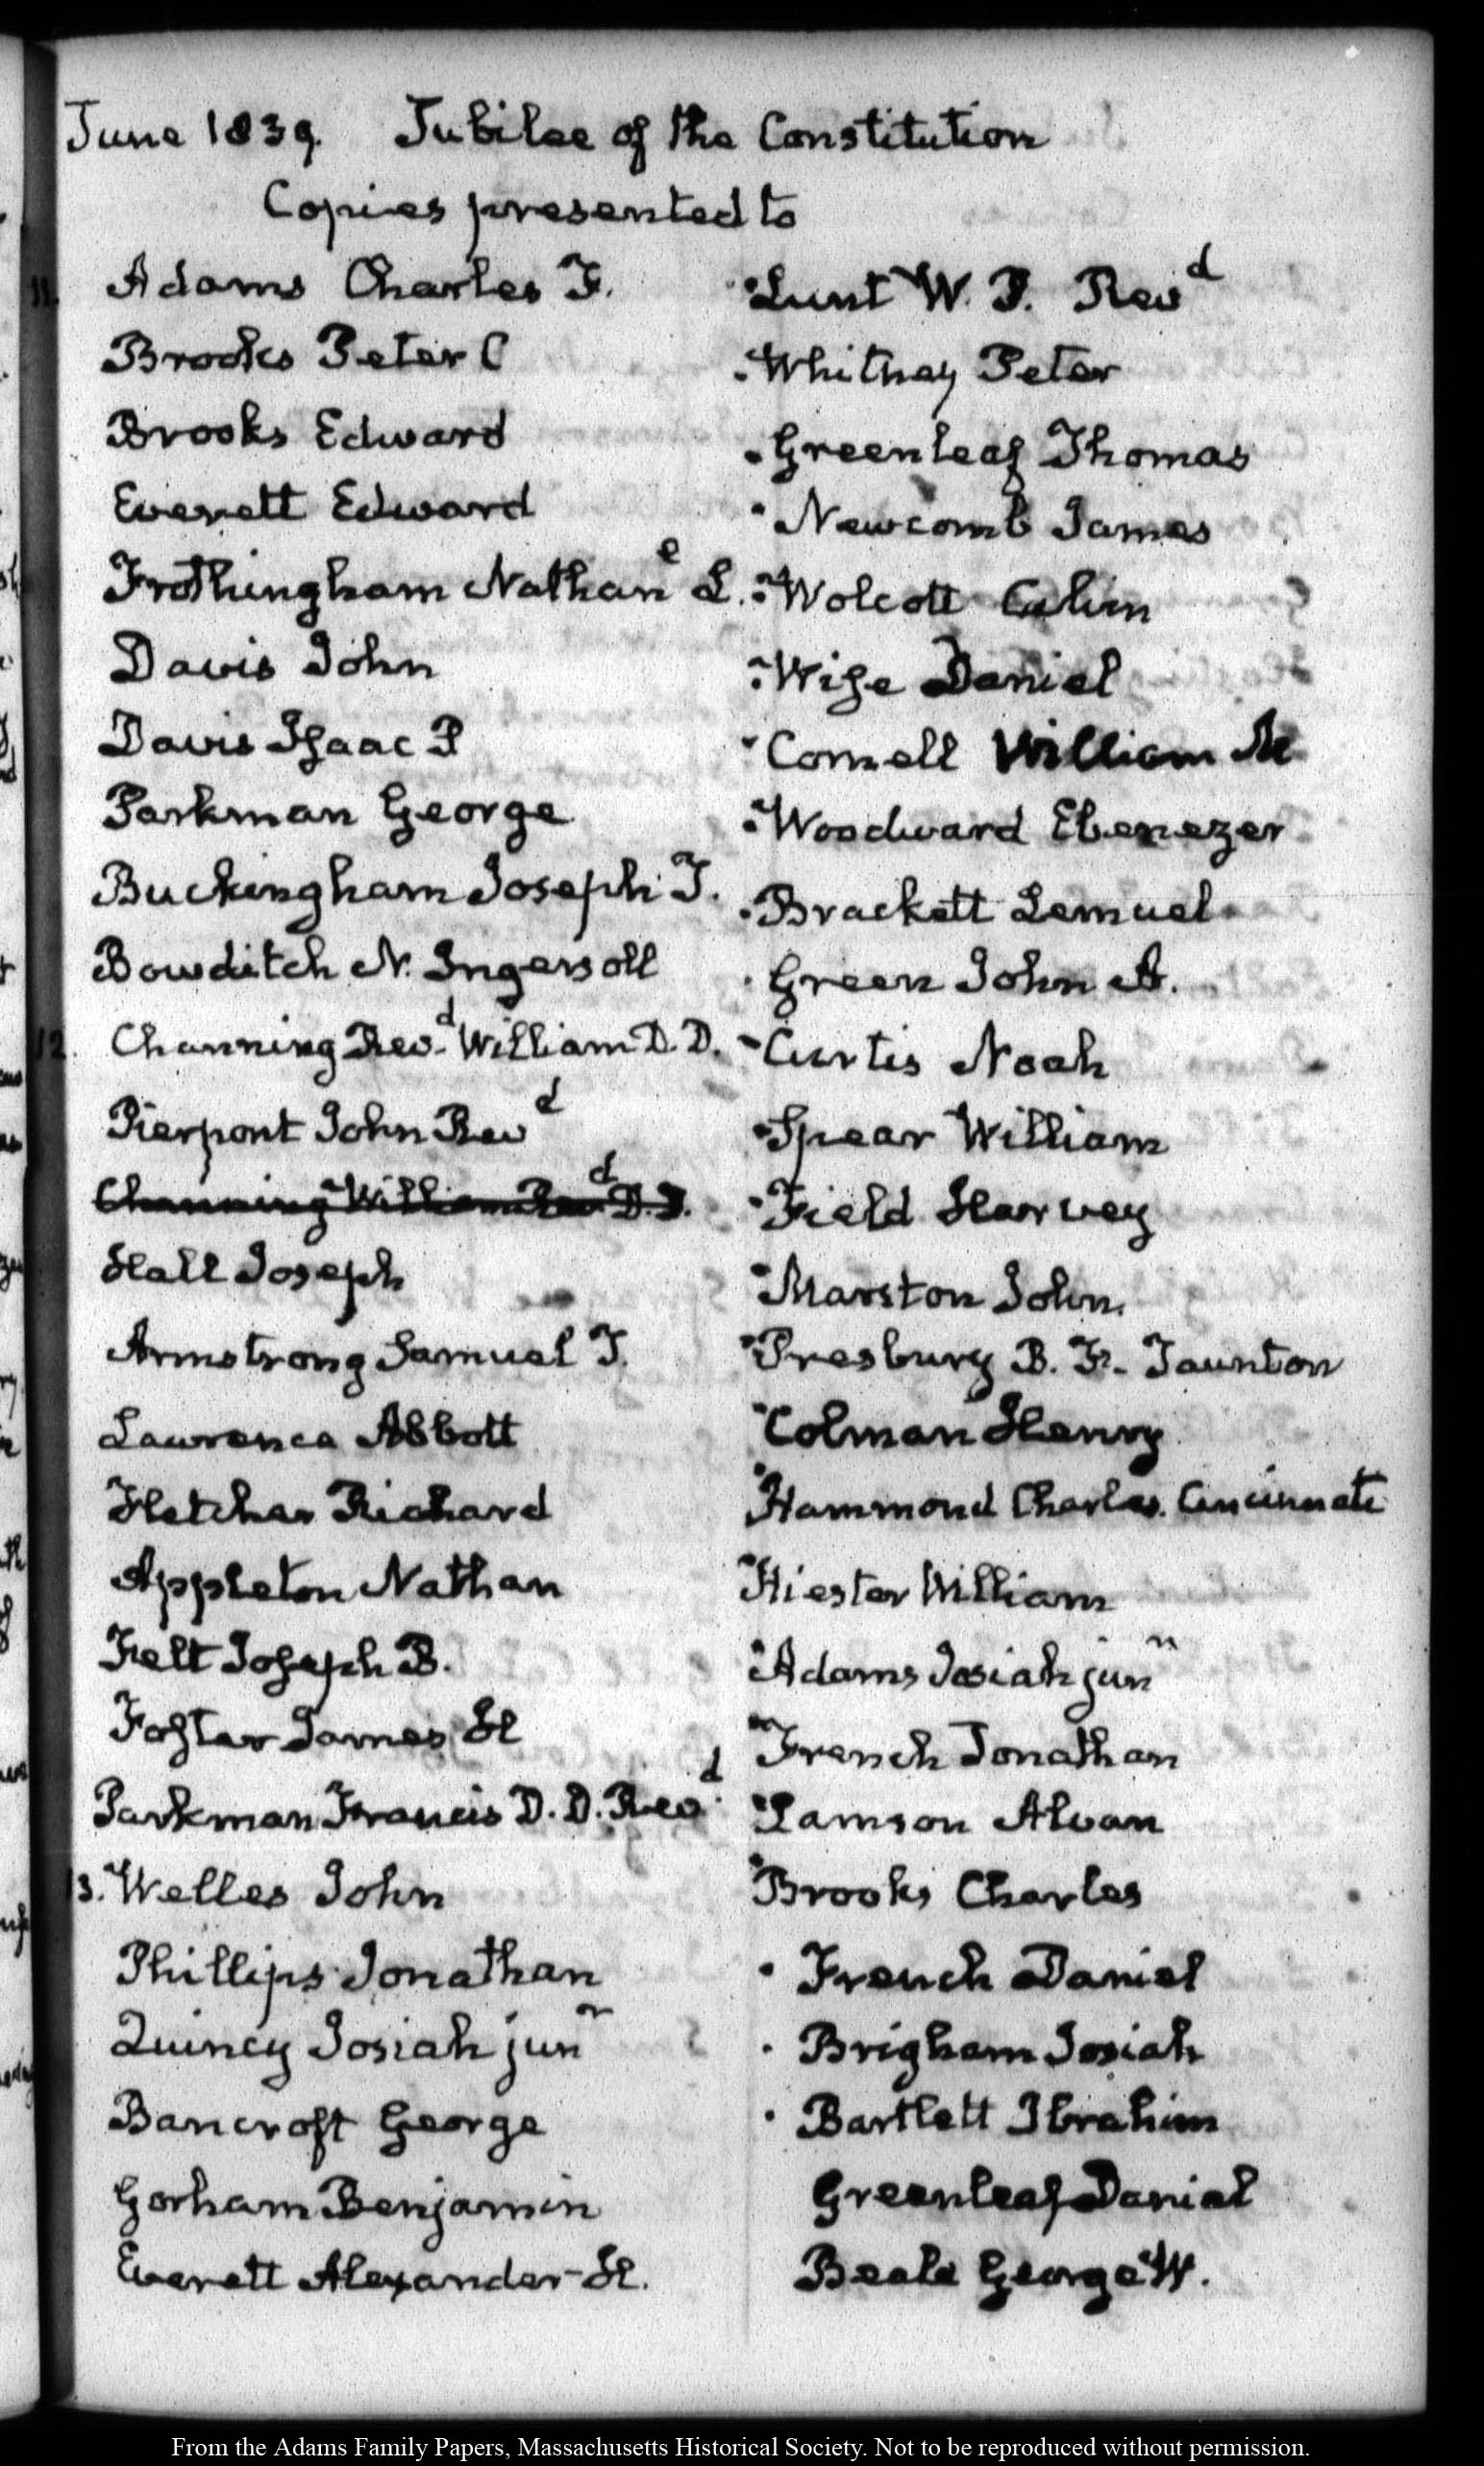 June 1839. Jubilee of the Constitution
Copies presented to
11. Adams Charles F.
Brooks Peter C
Brooks Edward
Everett Edward
Frothingham Nathan^e L.
Davis John
Davis Isaac P
Parkman George
Buckingham Joseph T.
Bowditch N. Ingersoll
12. Channing Rev^d William D. D.
Pierpont John Rev^d
Channing William Rev^d D.D.
Hall Joseph
Armstrong Samuel T.
Lawrence Abbott
Fletcher Richard
Appleton Nathan
Felt Joseph B.
Foster James H
Parkman Francis D. D. Rev^d
13. Welles John
Phillips Jonathan
Quincy Josiah jun^r
Bancroft George
Gorham Benjamin
Everett Alexander H.
Lunt W. P. Rev^d
Whitney Peter
Greenleaf Thomas
Newcomb James
Wolcott Calvin
Wise Daniel
Cornell William M
Woodward Ebenezer
Brackett Lemuel
Green John A.
Curtis Noah
Spear William
Field Harvey
Marston John.
Presbury B. F. - Taunton
Colman Henry
Hammond Charles. Cincinnati
Hiester William
Adams Josiah jun^r
French Jonathan
Lamson Alvan
Brooks Charles
French Daniel
Brigham Josiah
Bartlett Ibrahim
Greenleaf Daniel
Beale George W.
From the Adams Family Papers, Massachusetts Historical Society. Not to be reproduced without permission.